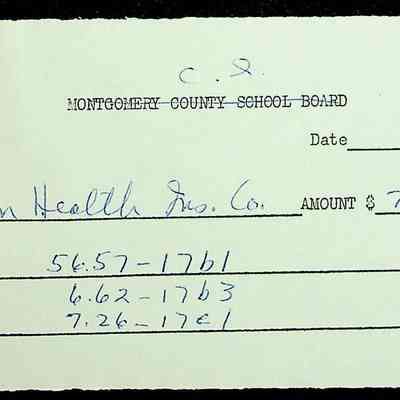 C. I.
MONTGOMERY COUNTY SCHOOL BOARD
Date
n Health Ins. Co. AMOUNT $ 7
56.57-17b1
6.62-17b3
7.26-17c1